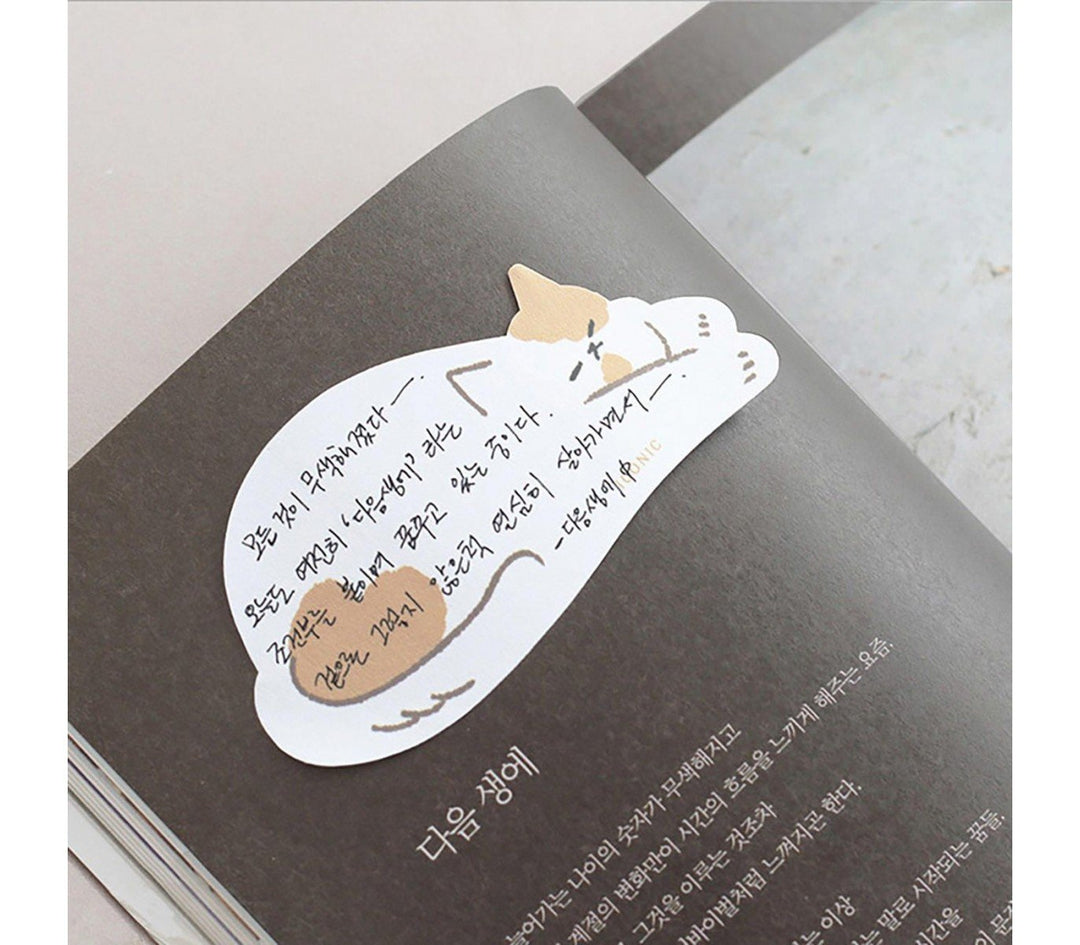 모든 것이 무색해졌다 ―.
오늘도 여전히 '다음생에' 라는
조건부를 붙이며 꿈꾸고 있는 중이다.
겉으론 그렇지 않은척 열심히 살아가면서 ―.
- 다음생에 中
ICONIC
다음 생에
늘어가는 나이의 숫자가 무색해지고
계절의 변화만이 시간의 흐름을 느끼게 해주는 요즘.
그것을 이루는 것조차
바이벌처럼 느껴지곤 한다.
는 이상
는 말로 시작되는 꿈들.
시간을